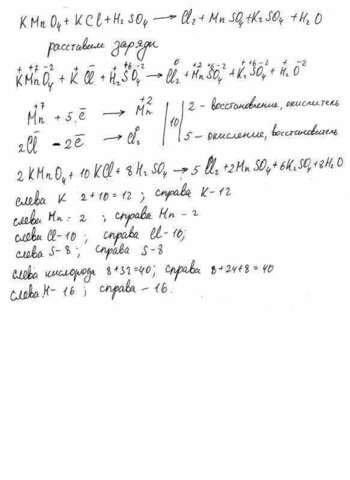 KMnO₄ + KCl + H₂SO₄ → Cl₂ + MnSO₄ + K₂SO₄ + H₂O
расставим заряды
K⁺Mn⁺⁷O₄⁻² + K⁺Cl⁻ + H₂⁺S⁺⁶O₄⁻² → Cl₂⁰ + Mn⁺²S⁺⁶O₄⁻² + K₂⁺S⁺⁶O₄⁻² + H₂⁺O⁻²
Mn⁺⁷ + 5ē → Mn⁺² | 10 | 2 - восстановление, окислитель
2Cl⁻ - 2ē → Cl₂⁰ 5 - окисление, восстановитель
2KMnO₄ + 10KCl + 8H₂SO₄ → 5Cl₂ + 2MnSO₄ + 6K₂SO₄ + 8H₂O
слева K 2+10=12 ; справа K-12
слева Mn - 2 ; справа Mn - 2
слева Cl-10 ; справа Cl-10;
слева S-8 ; справа S-8
слева кислорода 8+32=40; справа 8+24+8=40
слева H-16 ; справа - 16.